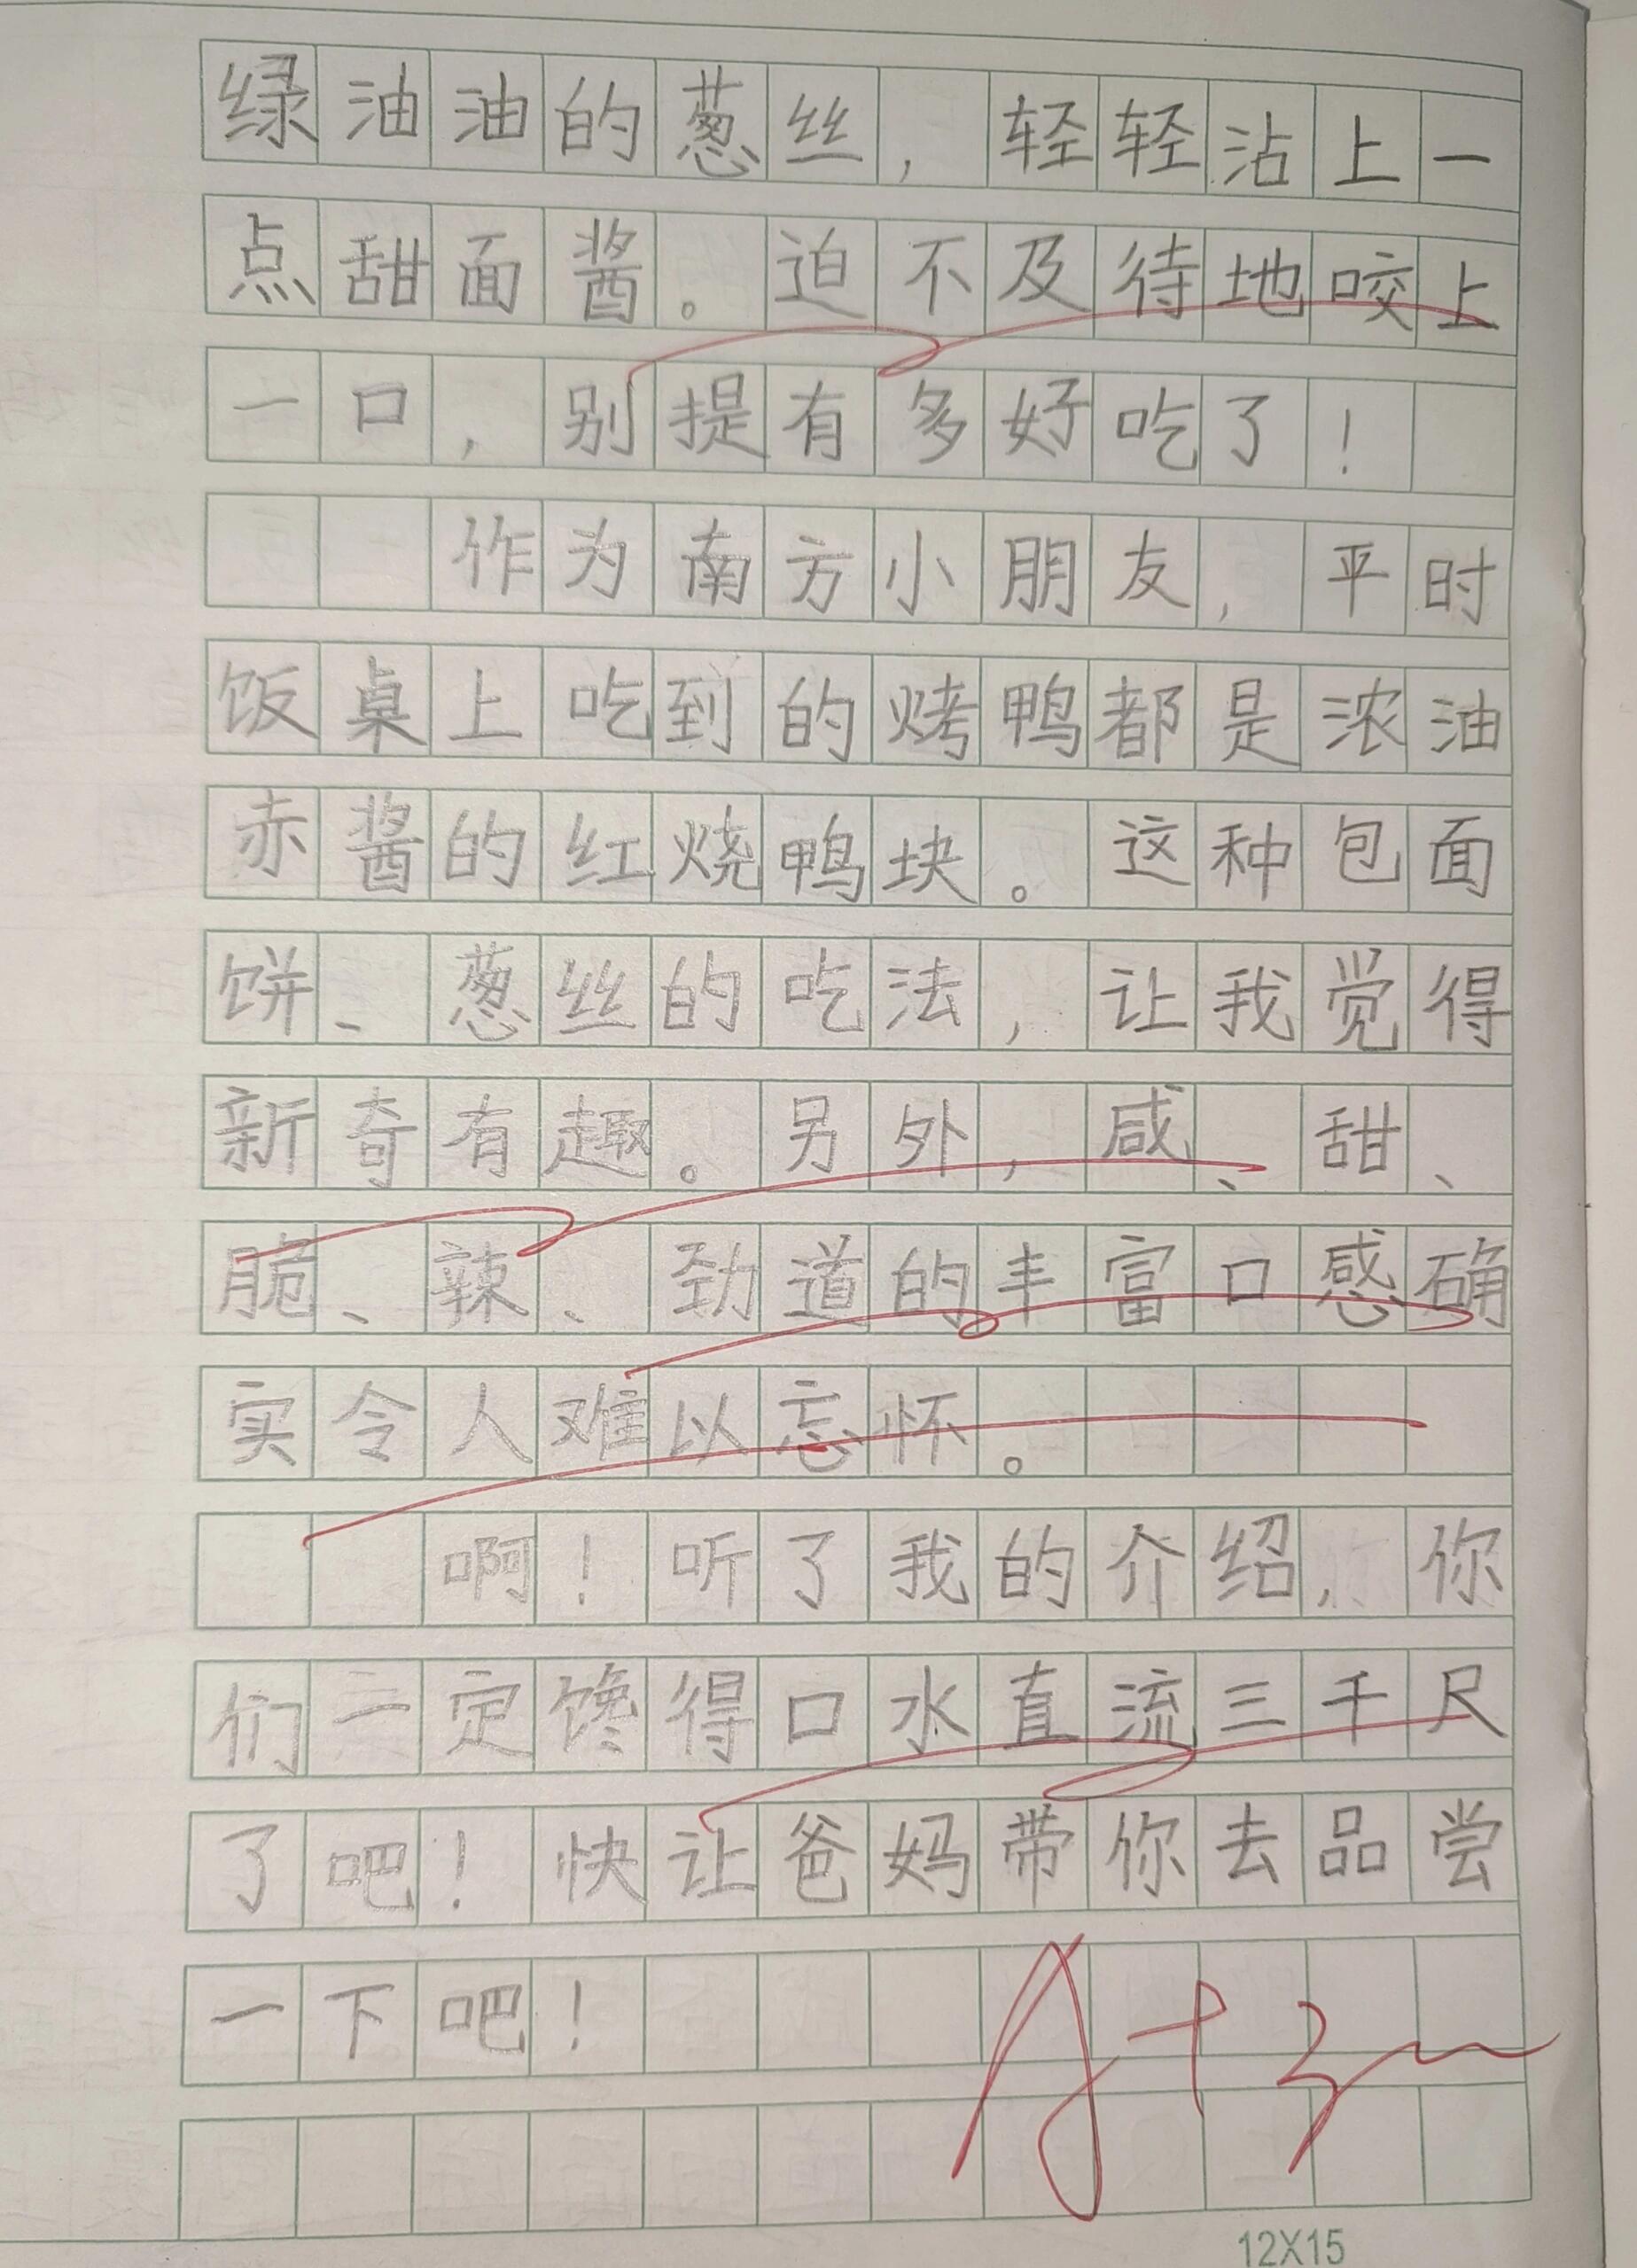 绿油油的葱丝，轻轻沾上一
点甜面酱。迫不及待地咬上
一口，别提有多好吃了！
作为南方小朋友，平时
饭桌上吃到的烤鸭都是浓油
赤酱的红烧鸭块。这种包面
饼、葱丝的吃法，让我觉得
新奇有趣。另外，咸、甜、
脆、辣、劲道的丰富口感确
实令人难以忘怀。
啊！听了我的介绍，你
们一定馋得口水直流三千尺
了吧！快让爸妈带你去品尝
一下吧！
A+
12X15